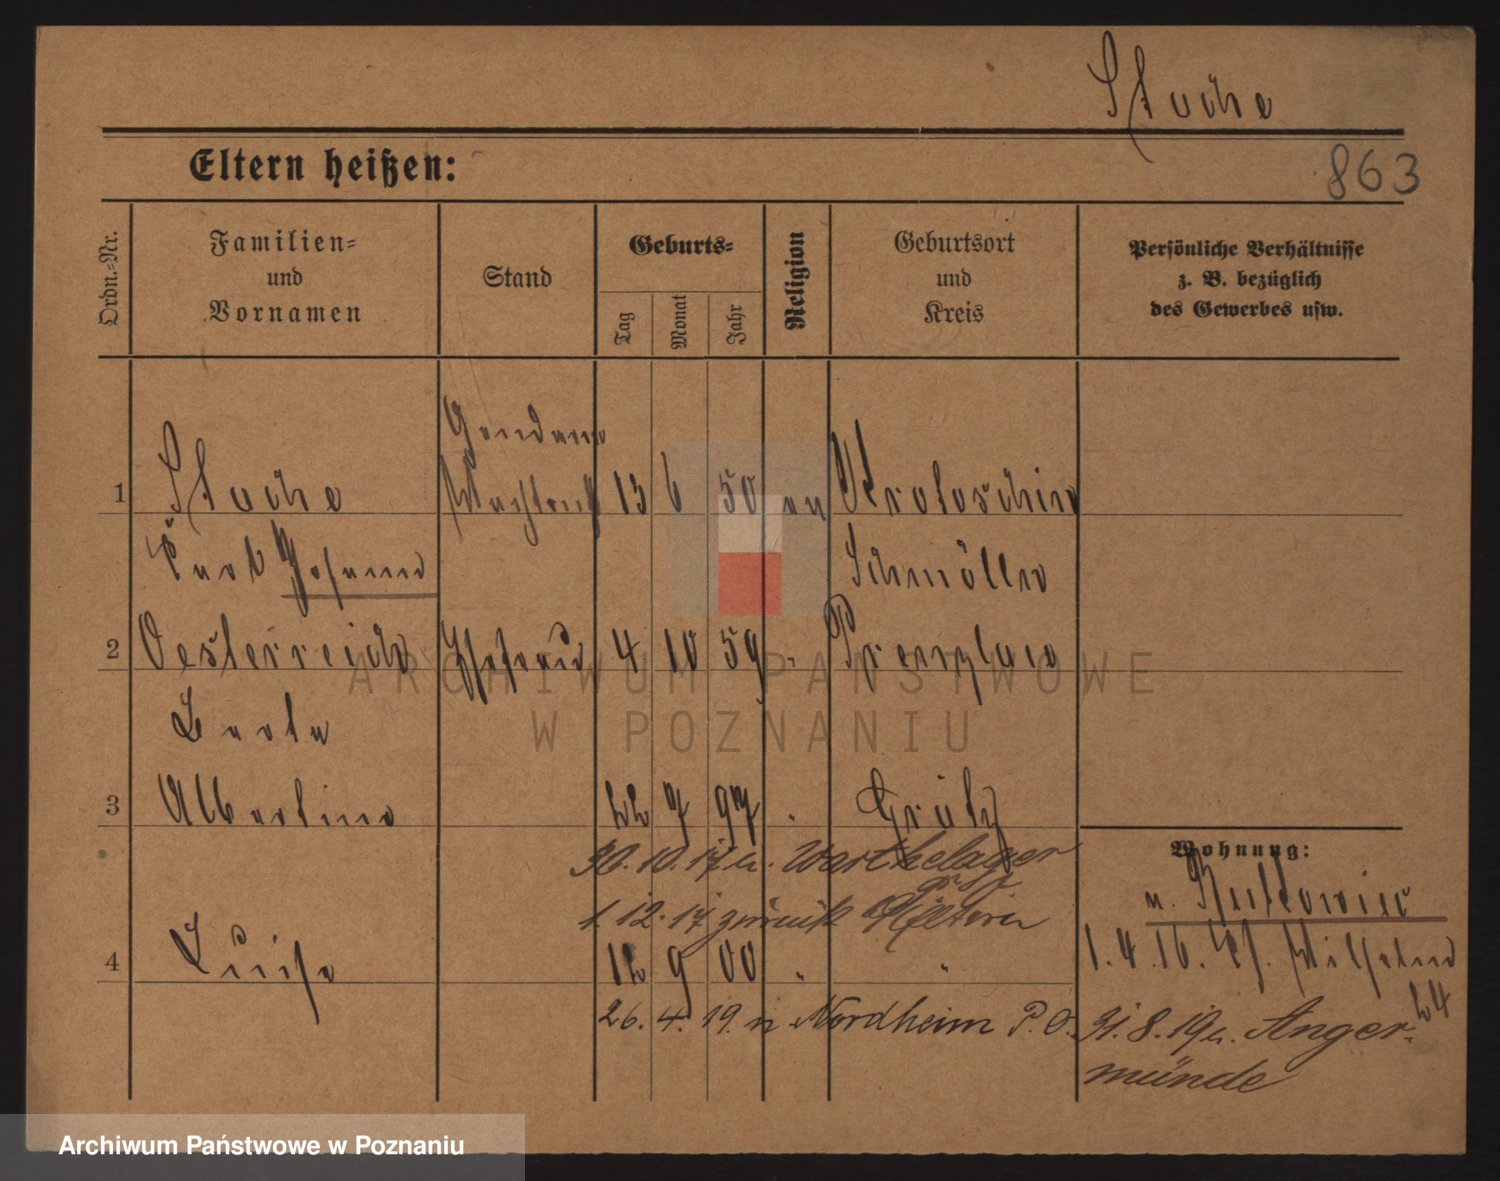 Stache
Eltern heißen:
863
Ordn.-Nr.
Familien-
und
Vornamen
Stand
Geburts-
Tag
Monat
Jahr
Religion
Geburtsort
und
Kreis
Persönliche Verhältnisse
z. B. bezüglich
des Gewerbes usw.
Gendarm
1 Stache Wachtmstr 13 6 50 ev Krotoschin
Karl Johann Schmölln
2 Oesterreich Ehefrau 4 10 59 " Prenzlau
Berta
3 Albertine 22 7 97 " Grätz
Wohnung:
30.10.17 n. Warthelager
n.
1.12.17 zurück
4 Luise 12 9 00 " "
1.4.16. Wilhelm
24
26.4.19. n Nordheim P. O. 31.8.19 n. Anger-
münde
ARCHIWUM PAŃSTWOWE
W POZNANIU
Archiwum Państwowe w Poznaniu